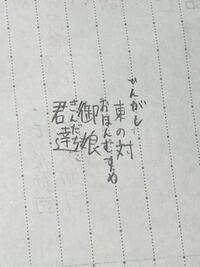 ひんがし
東の対
おほんむすめ
御娘
きんだち
君達